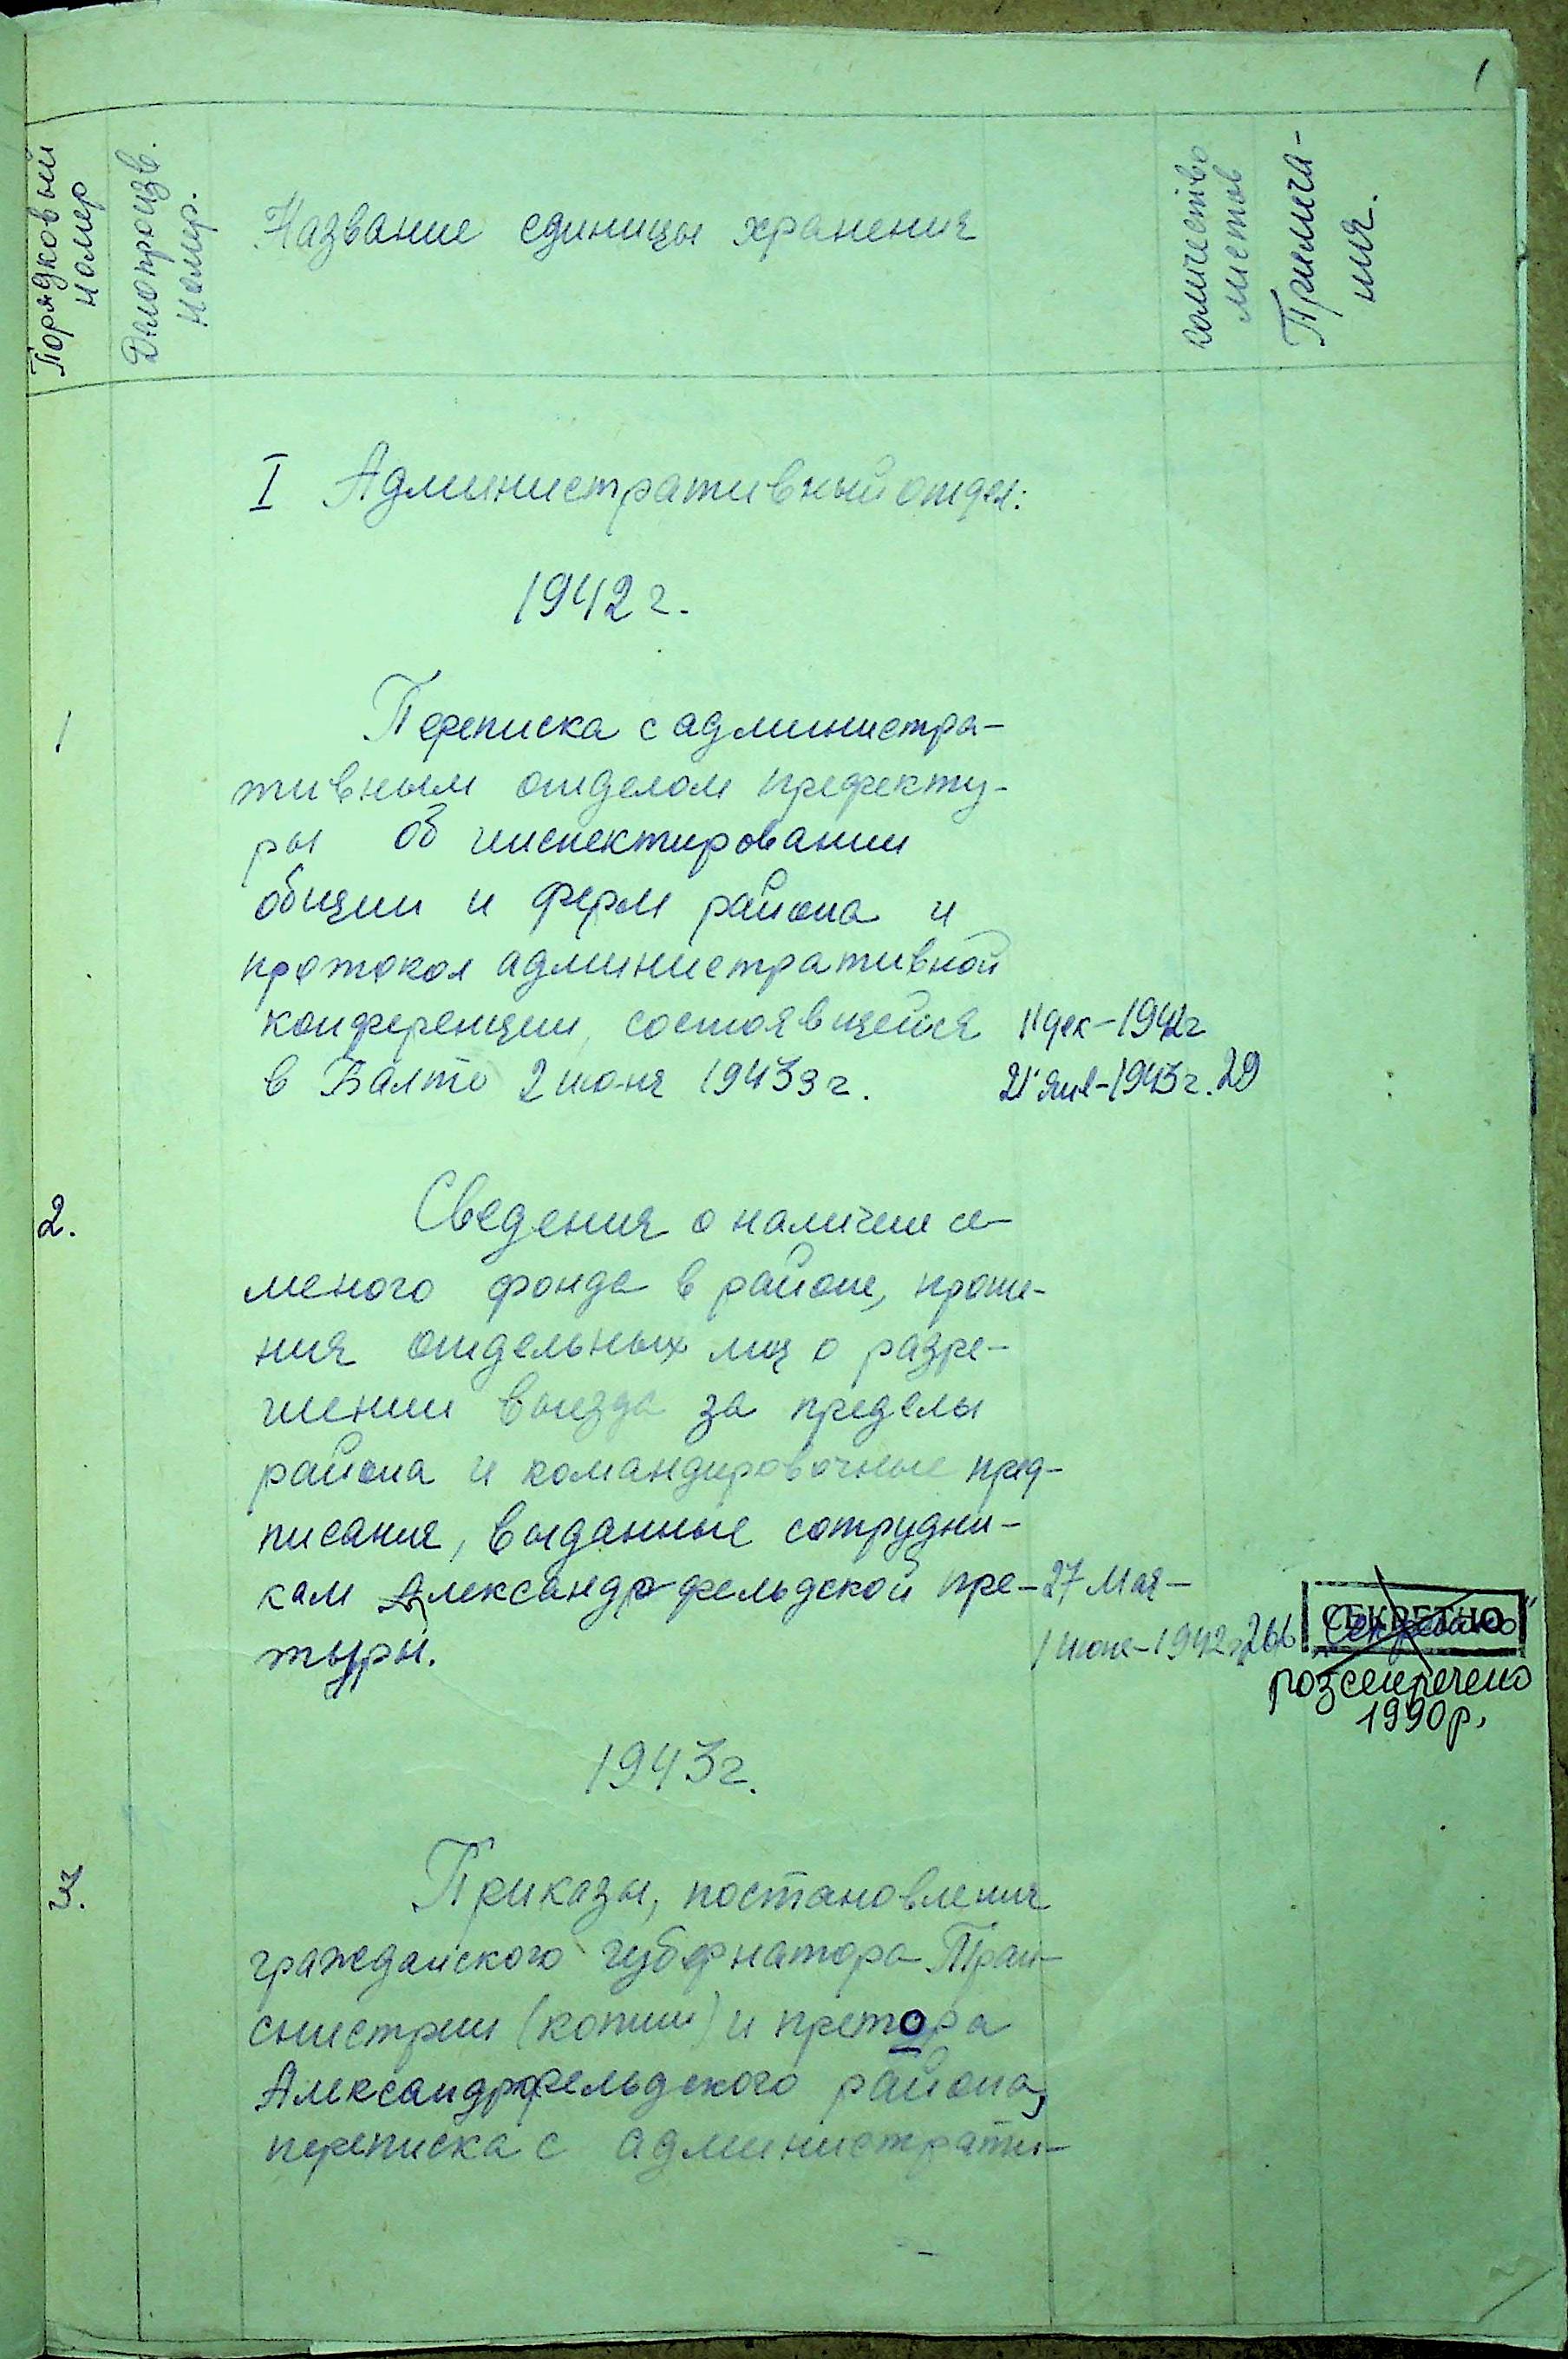 1
Порядковый
номер
Делопроизв.
номер.
Название единицы хранения
количество
листов
Примеча-
ния.
I Административный отдел:
1942 г.
1
Переписка с администра-
тивным отделом префекту-
ры об инспектировании
общин и ферм района и
протокол административной
конференции, состоявшейся 11 дек-1942г
в Балте 2 июня 1943 г. 21 янв-1943г. 29
2.
Сведения о наличии се-
меного фонда в районе, проше-
ния отдельных лиц о разре-
шении выезда за пределы
района и командировочные пред-
писания, выданные сотрудни-
кам Александрфельдской пре- 27 мая-
туры. 1 июне-1942г 266
СЕКРЕТНО
розсекречено
1990р.
1943г.
3.
Приказы, постановления
гражданского губернатора Тран-
снистрии (копии) и претора
Александрфельдского района,
переписка с администрати-